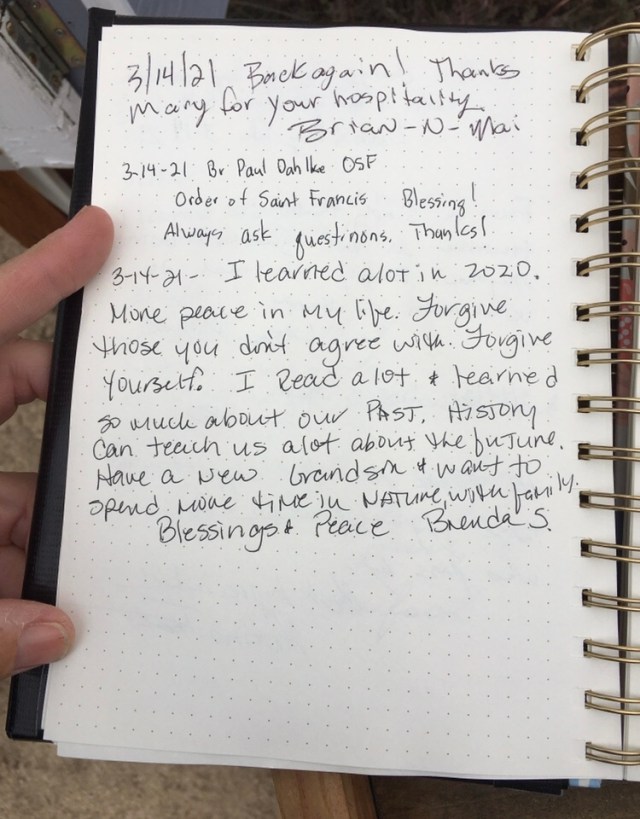 3/14/21 Back again! Thanks
Mary for your hospitality
Brian-N-Mai
3-14-21 Br Paul Dahlke OSF
Order of Saint Francis Blessing!
Always ask questinons. Thanks!
3-14-21- I learned alot in 2020.
More peace in my life. Forgive
those you don't agree with. Forgive
yourself. I Read a lot & learned
so much about our PAST. HISTORY
Can teach us alot about the future.
Have a New Grandson & want to
spend more time in NATURE, with family.
Blessings & Peace Brenda S.